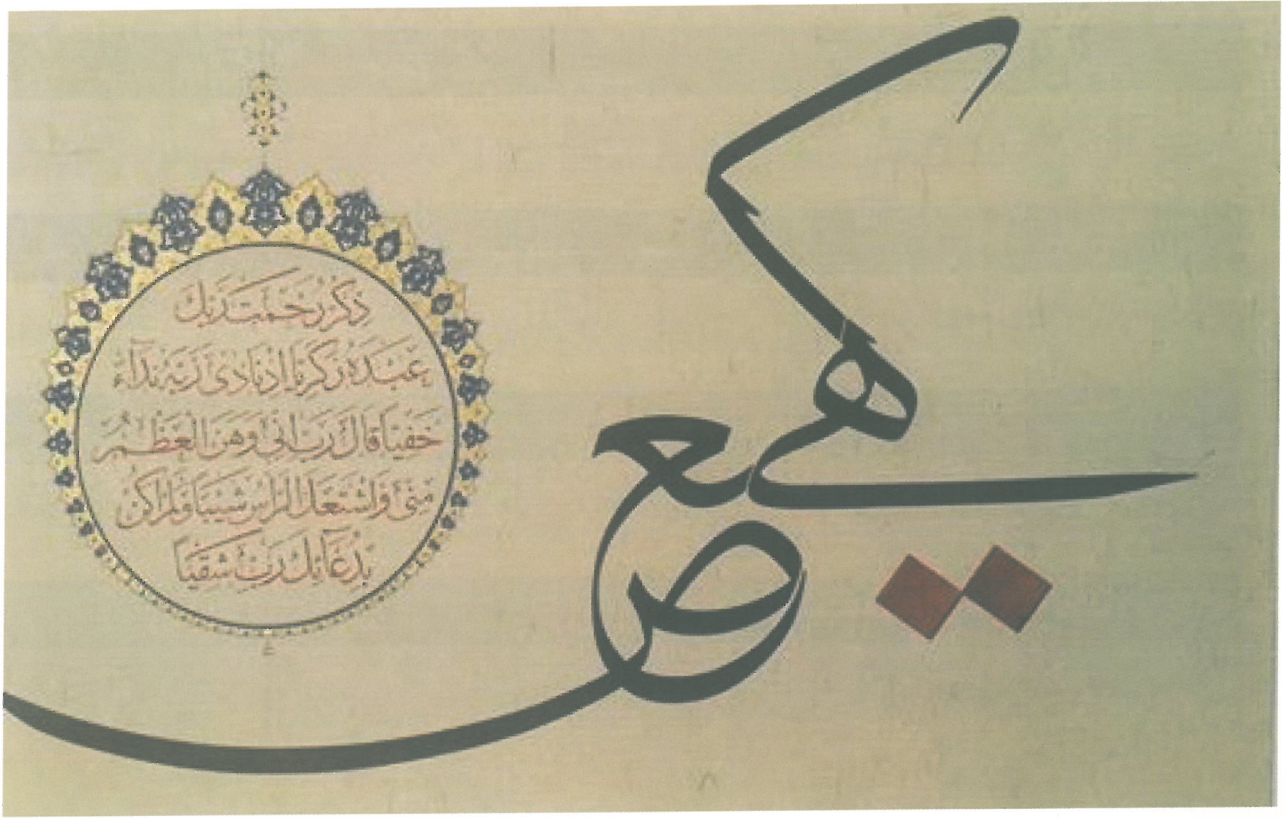 كهيعص
ذكر رحمت ربك
عبده زكريا اذ نادى ربه ندآء
خفيا قال رب انى وهن العظم
منى واشتعل الراس شيبا ولم اكن
بدعآئك رب شقيا